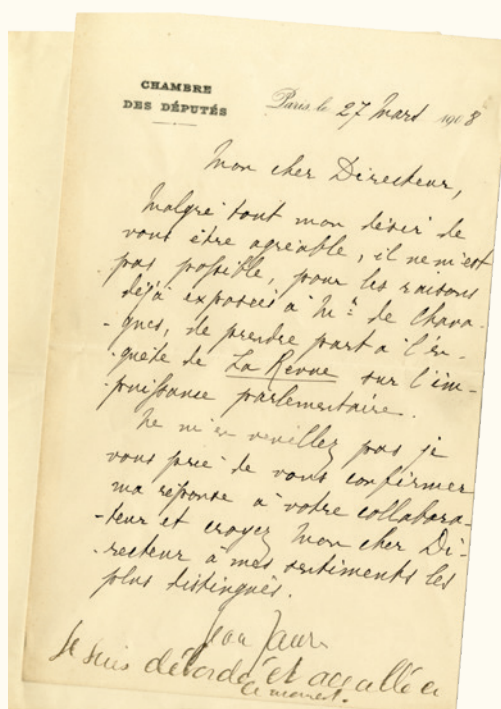 CHAMBRE
DES DÉPUTÉS
Paris, le 27 Mars 1908
Mon cher Directeur,
Malgré tout mon désir de
vous être agréable, il ne m'est
pas possible, pour les raisons
déjà exposées à Mr. de Chava-
-gnes, de prendre part à l'en-
-quête de La Revue sur l'im-
-puissance parlementaire.
Ne m'en veuillez pas je
vous prie de vous confirmer
ma réponse à votre collabora-
-teur et croyez Mon cher Di-
-recteur à mes sentiments les
plus distingués.
Jean Jaurès
Je suis débordé et accablé en
ce moment.